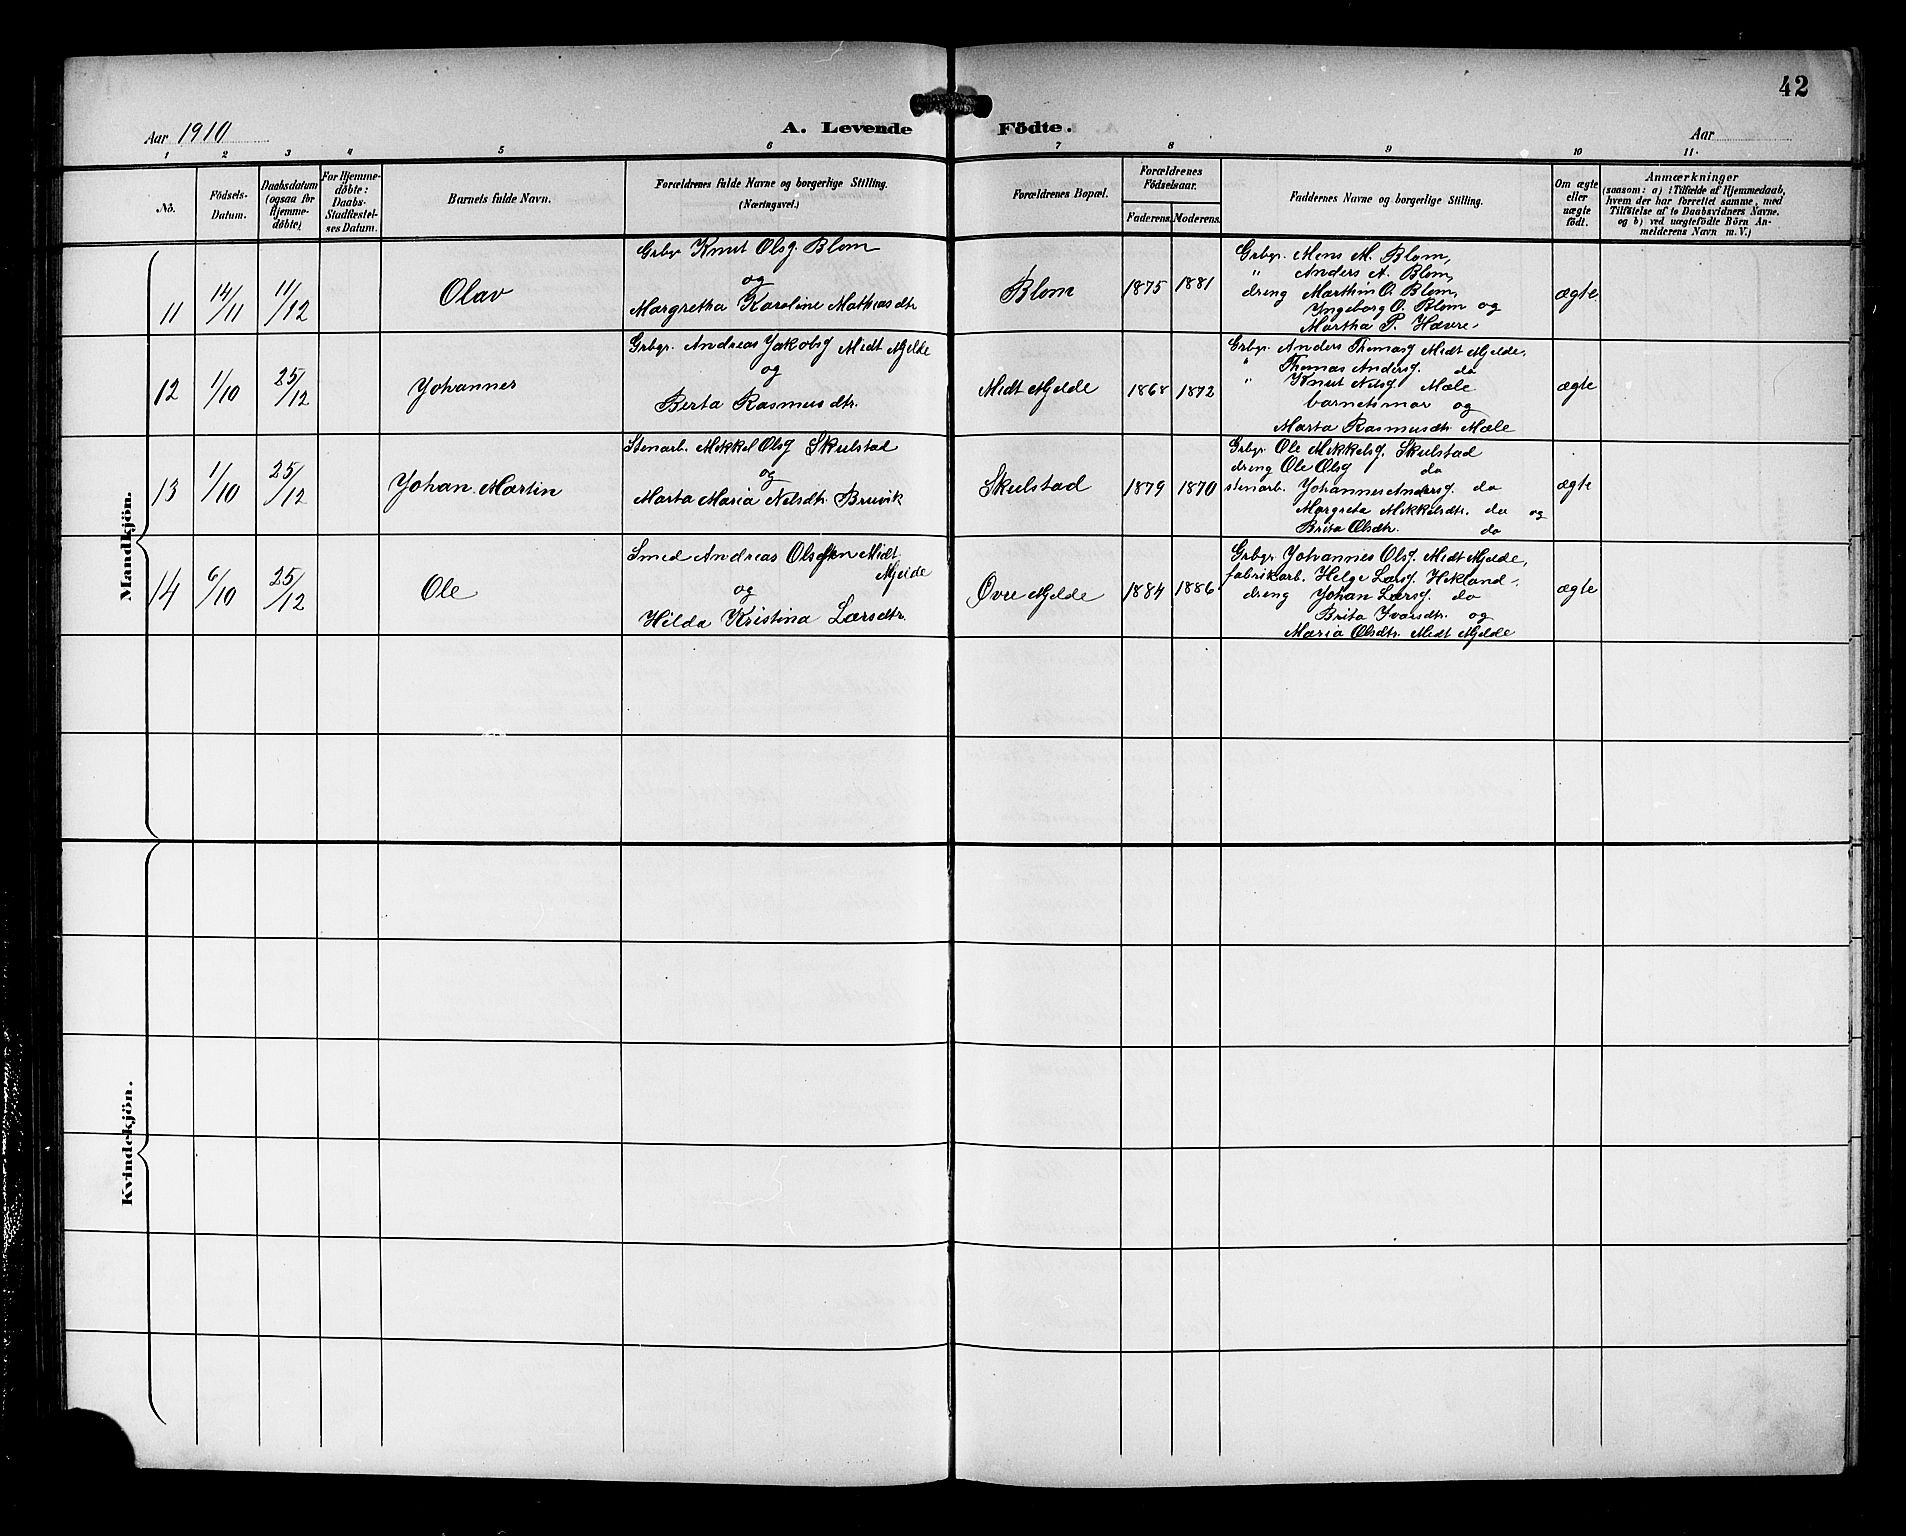 42
Aar 1910
A. Levende Födte.
Aar
1 2 3 4 5 6 7 8 9 10 11.
Nö.
Födsels-
Datum.
Daabsdatum
(ogsaa for
Hjemme-
döbte)
For Hjemme-
döbte:
Daabs-
Stadfæstel-
ses Datum.
Barnets fulde Navn.
Forældrenes fulde Navne og borgerlige Stilling.
(Næringsvei.)
Forældrenes Bopæl.
Forældrenes
Födselsaar.
Faderens. Moderens.
Faddernes Navne og borgerlige Stilling.
Om ægte
eller
uægte
født.
Anmærkninger
(saasom: a) i Tilfælde af Hjemmedaab,
hvem der har forrettet samme, med
Tilföielse af to Daabsvidners Navne.
og b) ved uægtefödte Börn An-
melderens Navn m. V.)
Mandkjön.
11 14/11 11/12 Olav
Grbgr Knut Olsg. Blom
og
Margretha Karoline Mathiasdtr
Blom 1875 1881
Grbgr. Mons M. Blom,
" Anders A. Blom,
dreng Marthin O. Blom,
Ingeborg O. Blom og
Martha P. Havre.
ægte
12 1/10 25/12 Johannes
Grbgr. Andreas Jakobsg Midt Mjelde
og
Berta Rasmusdtr.
Midt Mjelde 1868 1872
Grbgr. Anders Thomasg Midt Mjelde,
" Thomas Andersg. do
" Knut Nilsg. Mæle
barnets mor og
Marta Rasmusdtr. Mæle
ægte
13 1/10 25/12 Johan Martin
Stenarb. Mikkel Olsg Skulstad
og
Marta Maria Nilsdtr. Bruvik
Skulstad 1879 1870
Grbgr. Ole Mikkelsg. Skulstad
dreng Ole Olsg do
stenarb. Johannes Andersg. do
Margreta Mikkelsdtr. do og
Brita Olsdtr. do
ægte
14 6/10 25/12 Ole
Smed Andreas Olsen Midt
Mjelde
og
Hilda Kristina Larsdtr.
Øvre Mjelde 1884 1886
Grbgr. Johannes Olsg. Midt Mjelde,
fabrikarb. Helge Larsg. Hekland,
dreng Johan Larsg. do
Brita Ivarsdtr. og
Maria Olsdtr. Midt Mjelde
ægte
Kvindekjön.